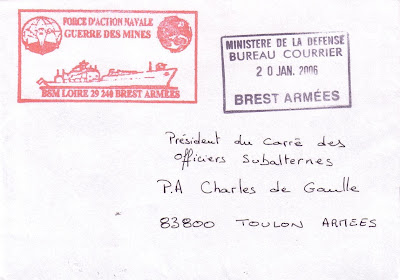 FORCE D'ACTION NAVALE
GUERRE DES MINES
BSM LOIRE 29 240 BREST ARMÉES
MINISTERE DE LA DEFENSE
BUREAU COURRIER
20 JAN. 2006
BREST ARMÉES
Président du Carré des
Officiers Subalternes
P.A Charles de Gaulle
83800 TOULON ARMEES